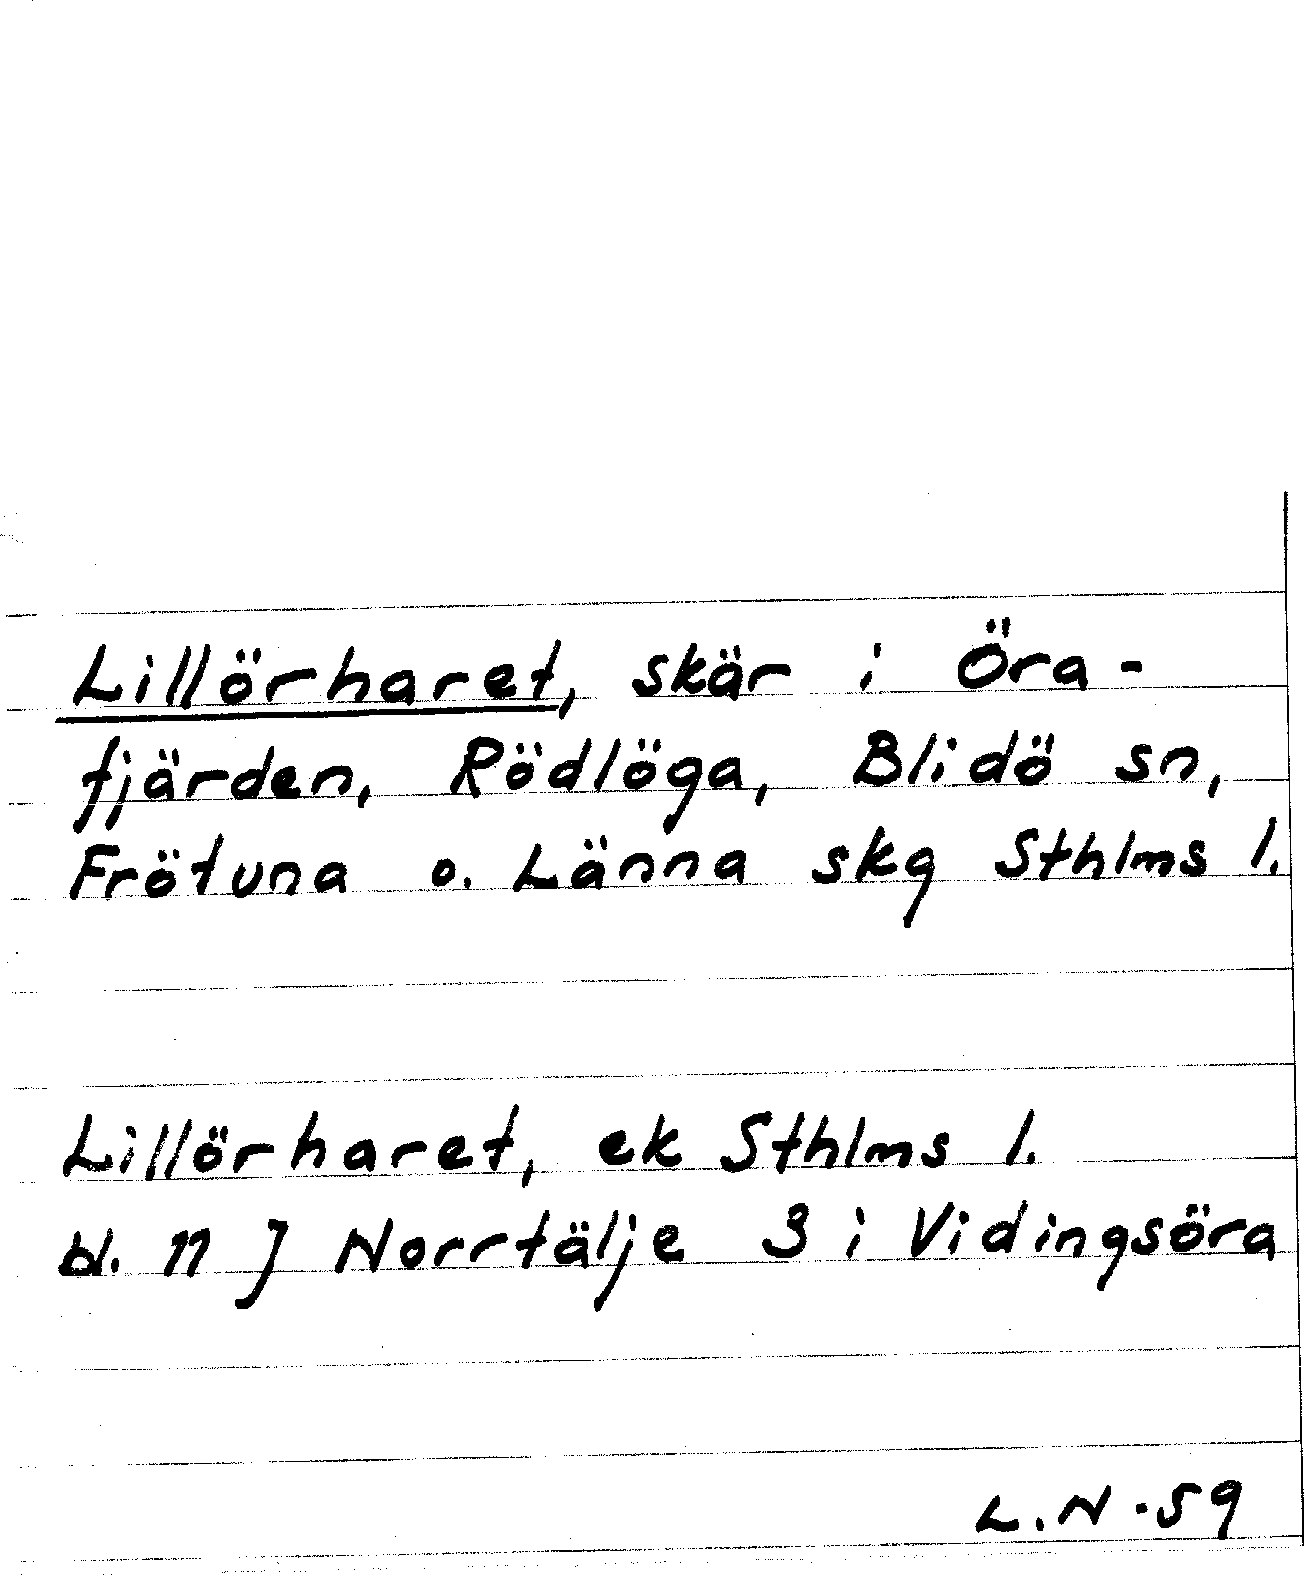 Lillörharet, skär i Öra-
fjärden, Rödlöga, Blidö sn,
Frötuna o. Länna skg Sthlms l.
Lillörharet, ek Sthlms l.
bl. 77 J Norrtälje 3 i Vidingsöra
L.N -59